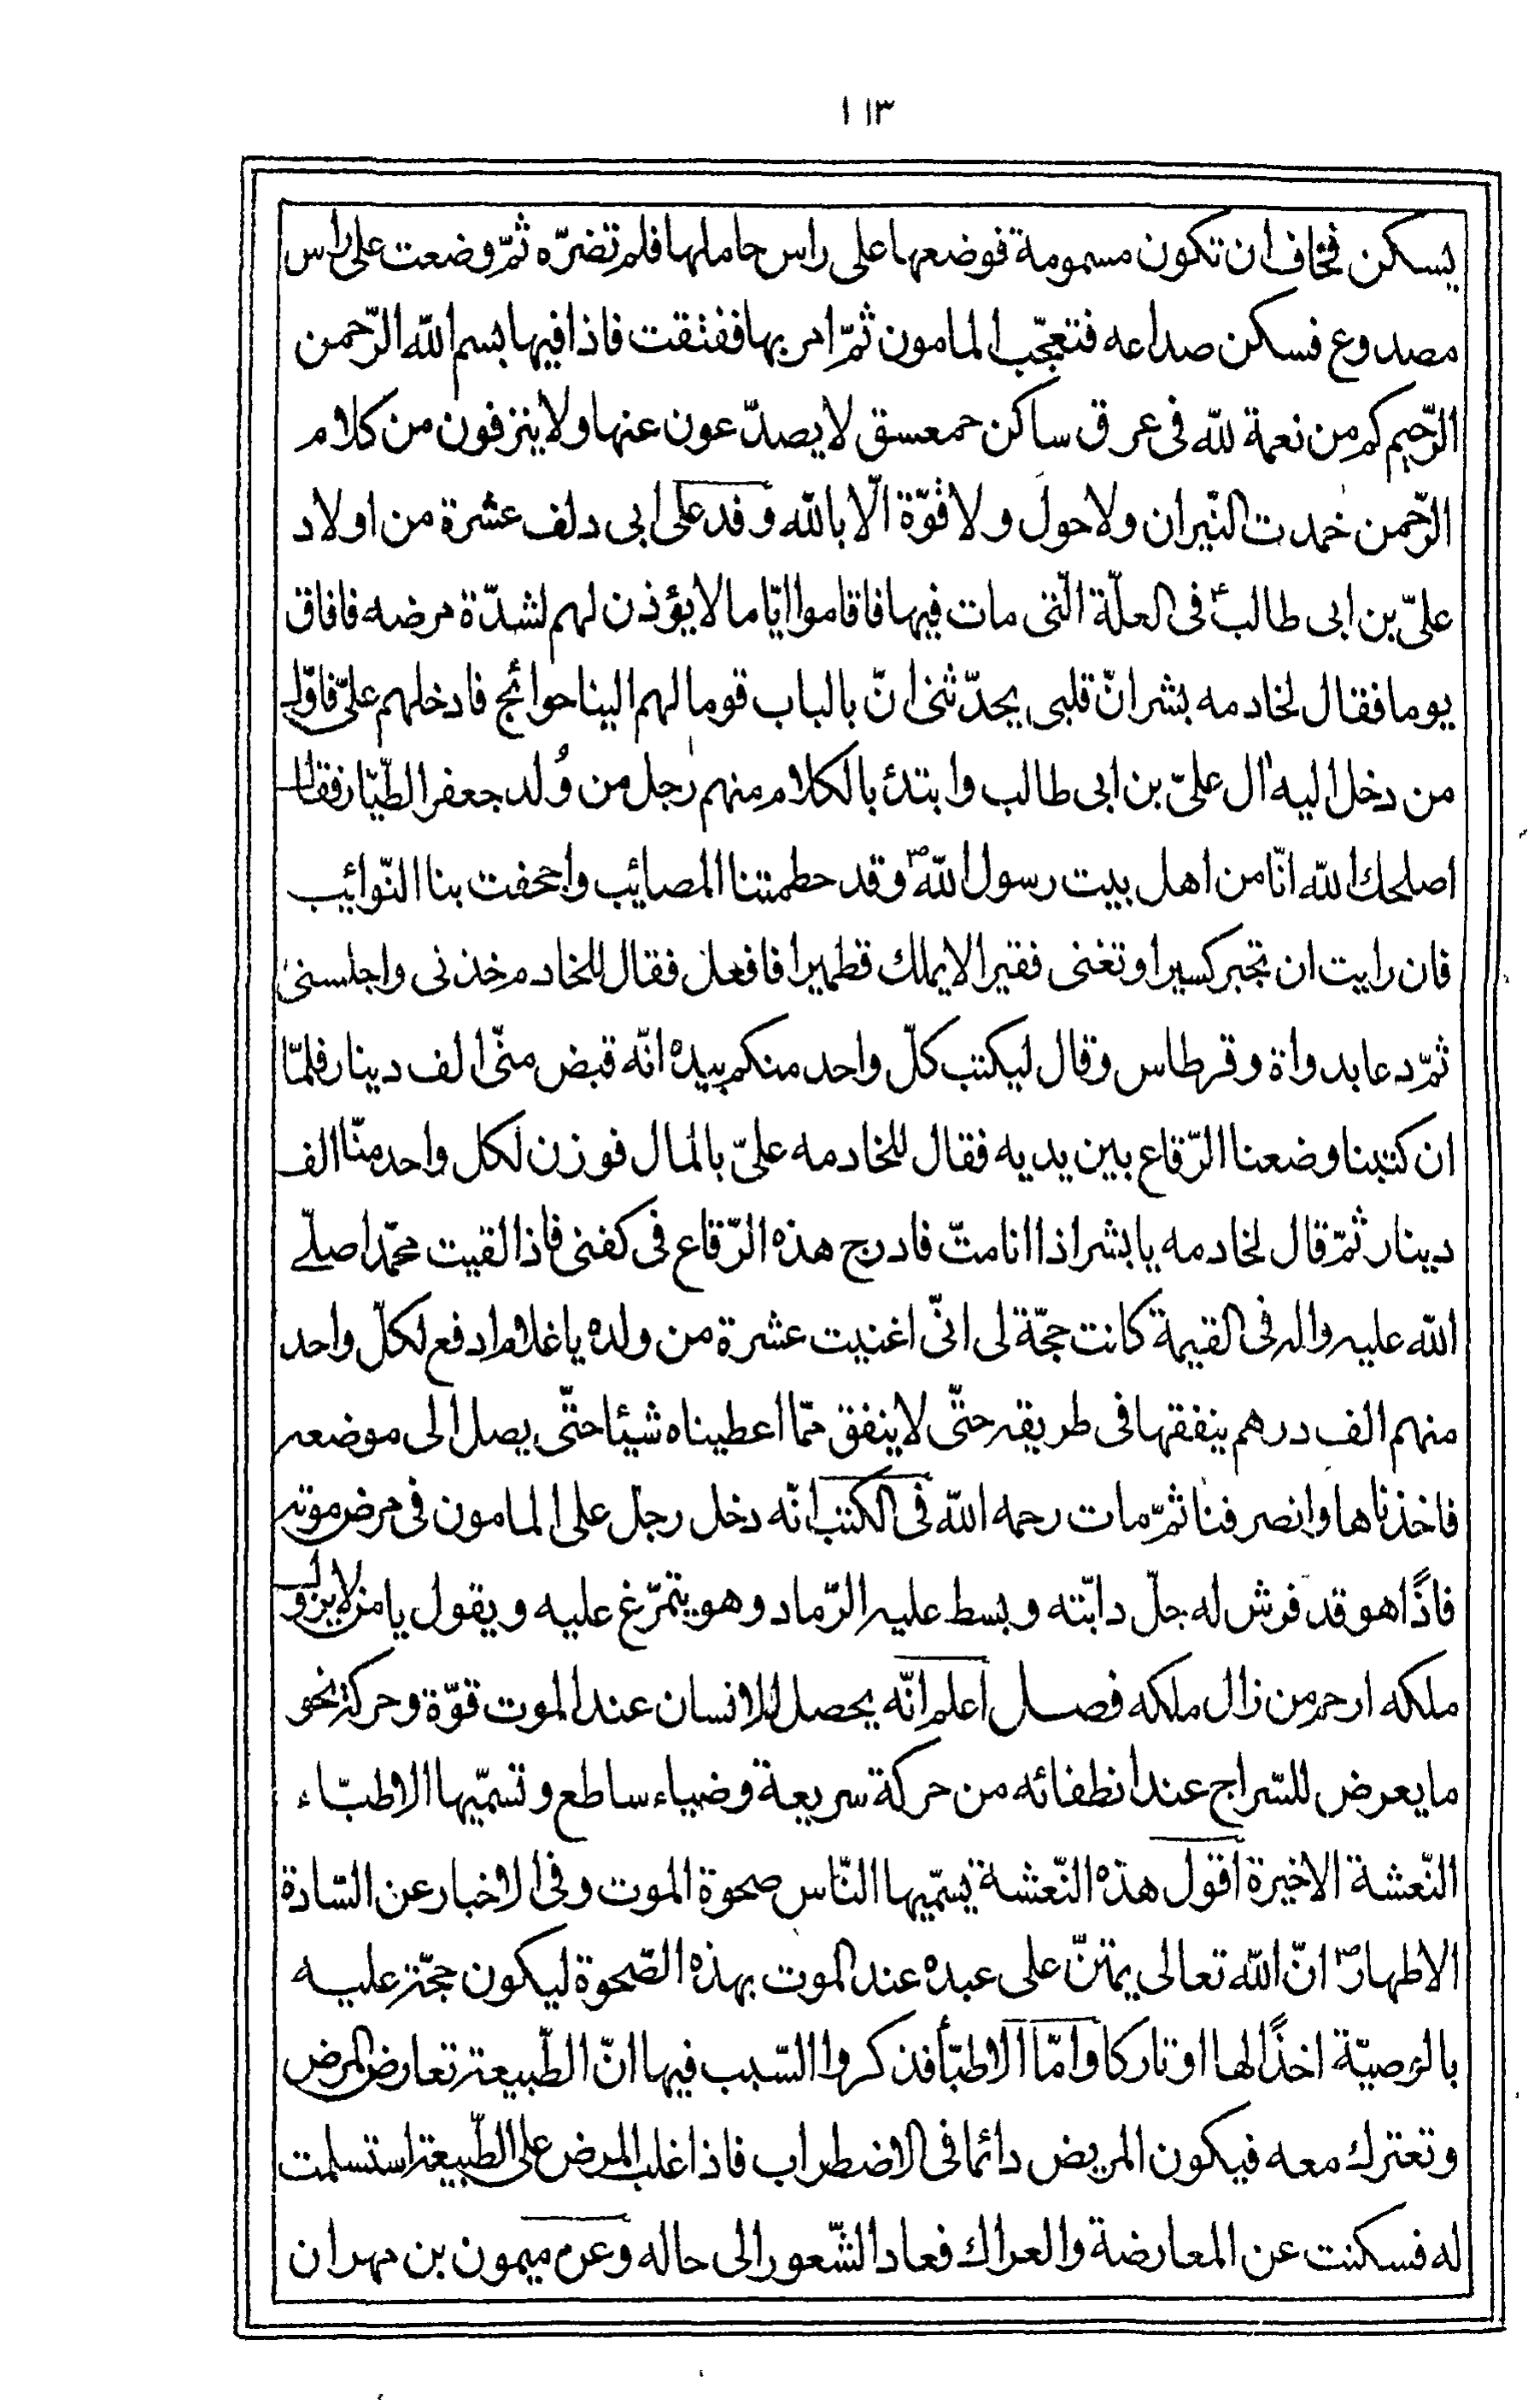 ١١٣
يسكن فخاف ان تكون مسمومة فوضعها على راس حاملها فلم تضرّه ثمّ وضعت على راس
مصدوع فسكن صداعه فتعجّب المامون ثمّ امر بها ففتقت فاذا فيها بسم الله الرّحمن
الرّحيم كم من نعمة لله فى عرق ساكن حمعسق لا يصدّعون عنها ولا ينزفون من كلام
الرّحمن خمدت النّيران ولا حول ولا قوّة الّا بالله وفد على ابى دلف عشرة من اولاد
علىّ بن ابى طالبؑ فى العلّة الّتى مات فيها فاقاموا ايّاما لا يؤذن لهم لشدّة مرضه فافاق
يوما فقال لخادمه بشر انّ قلبى يحدّثنى انّ بالباب قوما لهم الينا حوائج فادخلهم علىّ فاوّل
من دخل اليه ال علىّ بن ابى طالب وابتدئ بالكلام منهم رجل من وُلد جعفر الطّيّار فقال
اصلحك الله انّا من اهل بيت رسول اللهؐ وقد حطمتنا المصائب واجحفت بنا النّوائب
فان رايت ان تجبر كسيرا وتغنى فقيرا لا يملك قطميرا فافعل فقال للخادم خذنى واجلسنى
ثمّ دعا بدواة وقرطاس وقال ليكتب كلّ واحد منكم بيده انّه قبض منّى الف دينار فلمّا
ان كتبنا وضعنا الرّقاع بين يديه فقال للخادمه علىّ بالمال فوزن لكل واحد منّا الف
دينار ثمّ قال لخادمه يا بشر اذا انا متّ فادرج هذه الرّقاع فى كفنى فاذا لقيت محمّدا صلّى
الله عليه واله فى القيمة كانت حجّة لى انّى اغنيت عشرة من ولده يا غلام ادفع لكلّ واحد
منهم الف درهم ينفقها فى طريقه حتّى لا ينفق ممّا اعطيناه شيئا حتّى يصل الى موضعه
فاخذناها وانصرفنا ثمّ مات رحمه الله فى الكتب انّه دخل رجل على المامون فى مرض موته
فاذًا هو قد فرش له جلّ دابّته وبسط عليه الرّماد وهو يتمرّغ عليه ويقول يا من لا يزول
ملكه ارحم من زال ملكه فصل اعلم انّه يحصل للانسان عند الموت قوّة وحركة نحو
ما يعرض للسّراج عند انطفائه من حركة سريعة وضياء ساطع وتسمّيها الاطبّاء
النّعشة الاخيرة اقول هذه النّعشة يسمّيها النّاس صحوة الموت وفى الاخبار عن السّادة
الاطهارؑ انّ الله تعالى يمتنّ على عبده عند الموت بهذه الصّحوة ليكون حجّة عليه
بالوصيّة اخذًا لها او تاركا وامّا الاطبّأ فذكروا السّبب فيها انّ الطّبيعة تعارض المرض
وتعترك معه فيكون المريض دائما فى الاضطراب فاذا غلب المرض على الطّبيعة استسلمت
له فسكنت عن المعارضة والعراك فعاد الشّعور الى حاله وعن ميمون بن مهران